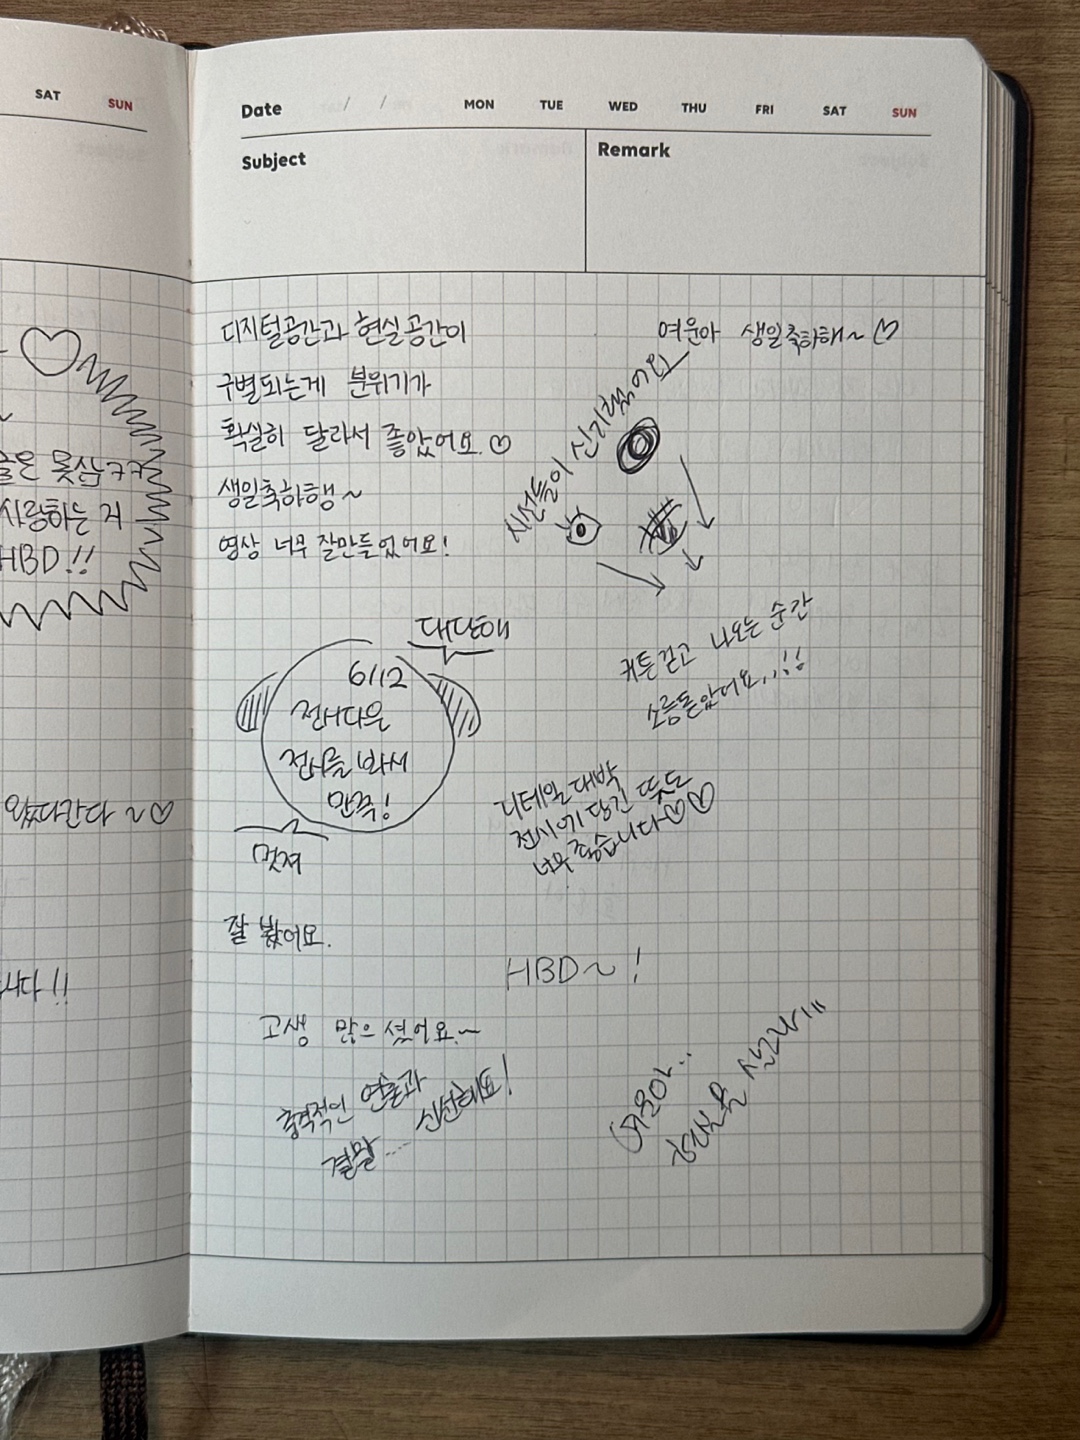 SAT SUN
Date / / MON TUE WED THU FRI SAT SUN
Subject
Remark
못삼ㅋㅋ
사랑하는 거
HBD!!
왔다간다 ~♡
니다!!
디지털공간과 현실공간이
구별되는게 분위기가
확실히 달라서 좋았어요.♡
생일축하행~
영상 너무 잘만들었어요!
여운아 생일축하해~♡
시선들이 신기했어요
커튼 걷고 나오는 순간
소름돋았어요...!!
대단해
6112
전시다운
전시를 봐서
만족!
멋져
디테일 대박
전시에 담긴 뜻도
너무 좋습니다♡♡
잘 봤어요.
HBD~!
고생 많으셨어요~
충격적인 연출과
결말... 신선해요!
여운아...
현실을 살라